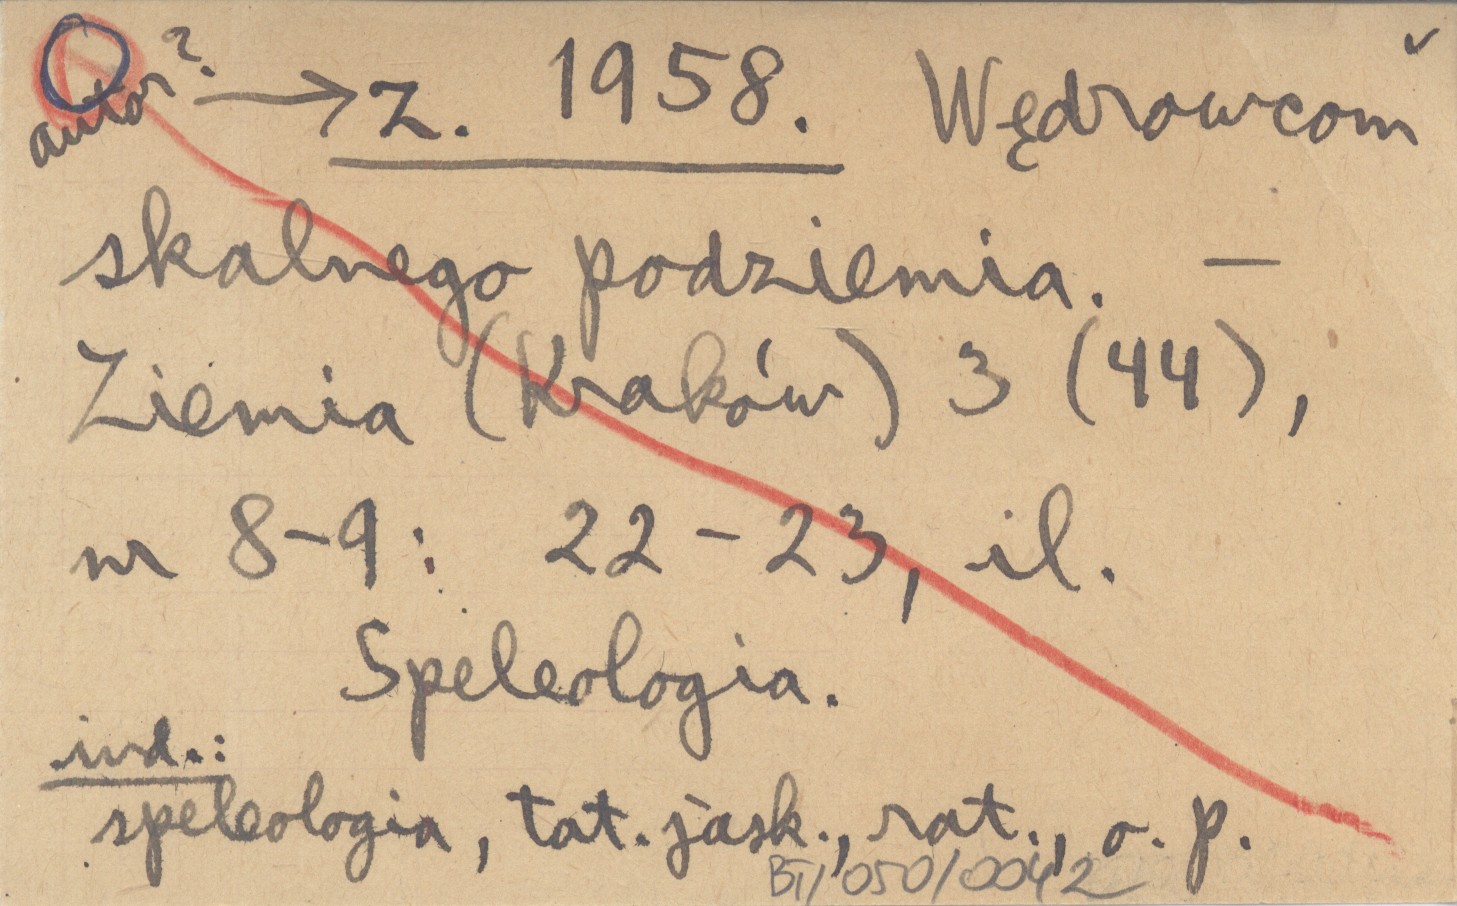 autor? → z. 1958. Wędrowcom
skalnego podziemia. —
Ziemia (Kraków) 3 (44),
nr 8-9: 22-23, il.
Speleologia.
ind.:
speleologia, tat. jask., rat., o. p.
BT/050/0042